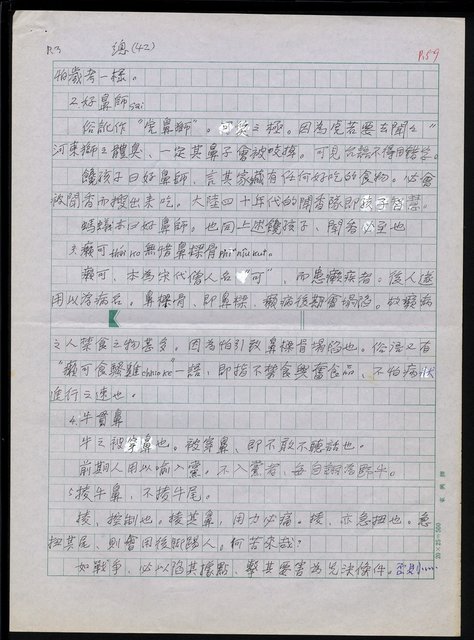 P.3 總(42) P.59
怕歲考一樣。
2. 好鼻師sai
俗訛作“虎鼻獅”。可笑之極。因為虎若要去聞之“
河東獅之體臭、一定其鼻子會被咬掉。可見
饞孩子曰好鼻師、言其家藏有任何好吃的食物。必會
被聞香而搜出來吃。大陸四十年代的聞香隊即孩子
螞蟻亦曰好鼻師。也同上述饞孩子、聞香必至也
3. 癩可 ko 無惜鼻樑骨
癩可、本為宋代僧人名“可”、而患癩疾者。後人遂
用以為病名。鼻樑骨、即鼻樑、癩病後期會塌陷。故癩病
之人禁食之物甚多。因為怕引致鼻樑骨塌陷也。俗語又有
“癩可食騷雞 ke”一語、即指不禁食興奮食品、不怕病
進行之速也。
4. 牛貫鼻
牛之被穿鼻也。被穿鼻、即不敢不聽話也。
前期人用以喻入黨。不入黨者、每自詡為野牛。
5. 捘牛鼻、不捘牛尾。
捘、控制也。捘其鼻、用力必痛。捘、亦急扭也。急
扭其尾、則會用後腳踢人。何苦來哉?
如戰爭、必以陷其據點、擊其要害為先決條件。否則……
20×25=500